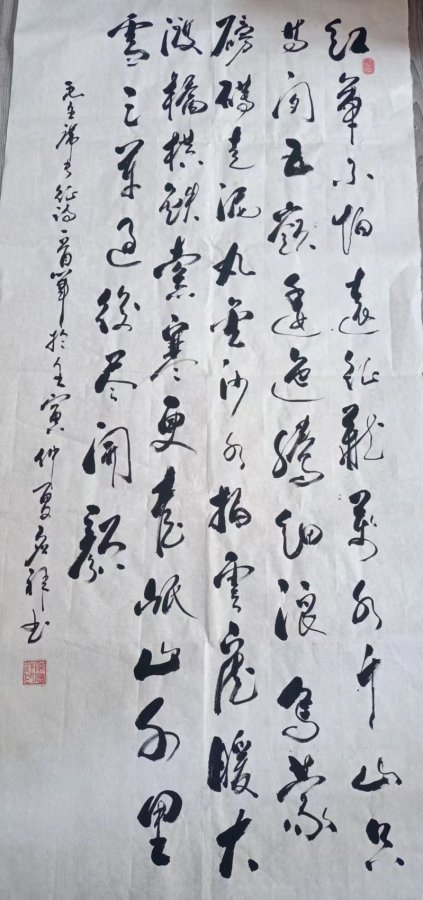 红军不怕远征難萬水千山只
等闲五嶺逶迤腾细浪烏蒙
磅礴走泥丸金沙水拍雲崖暖大
渡橋横鉄索寒更喜岷山千里
雪三军过後尽開颜
毛主席长征诗一首 於壬寅仲夏 祥书